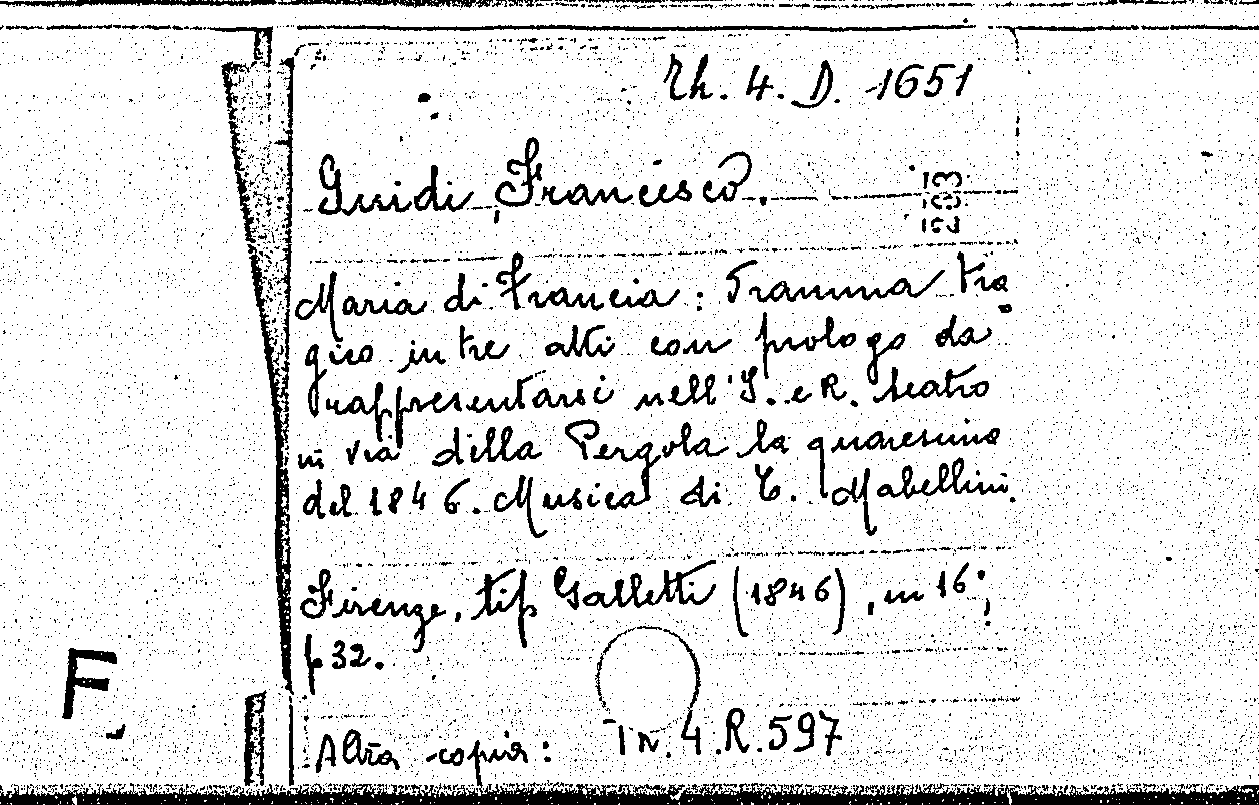 Rh. 4. D. 1651
Guidi, Francesco.
1203
Maria di Francia: Dramma tra
gico in tre atti con prologo da
rappresentarsi nell'I. e R. teatro
in via della Pergola la quaresima
del 1846. Musica di T. Mabellini.
Firenze, tip Galletti (1846), in 16°;
p 32.
F
Altra copia: 4.R.597